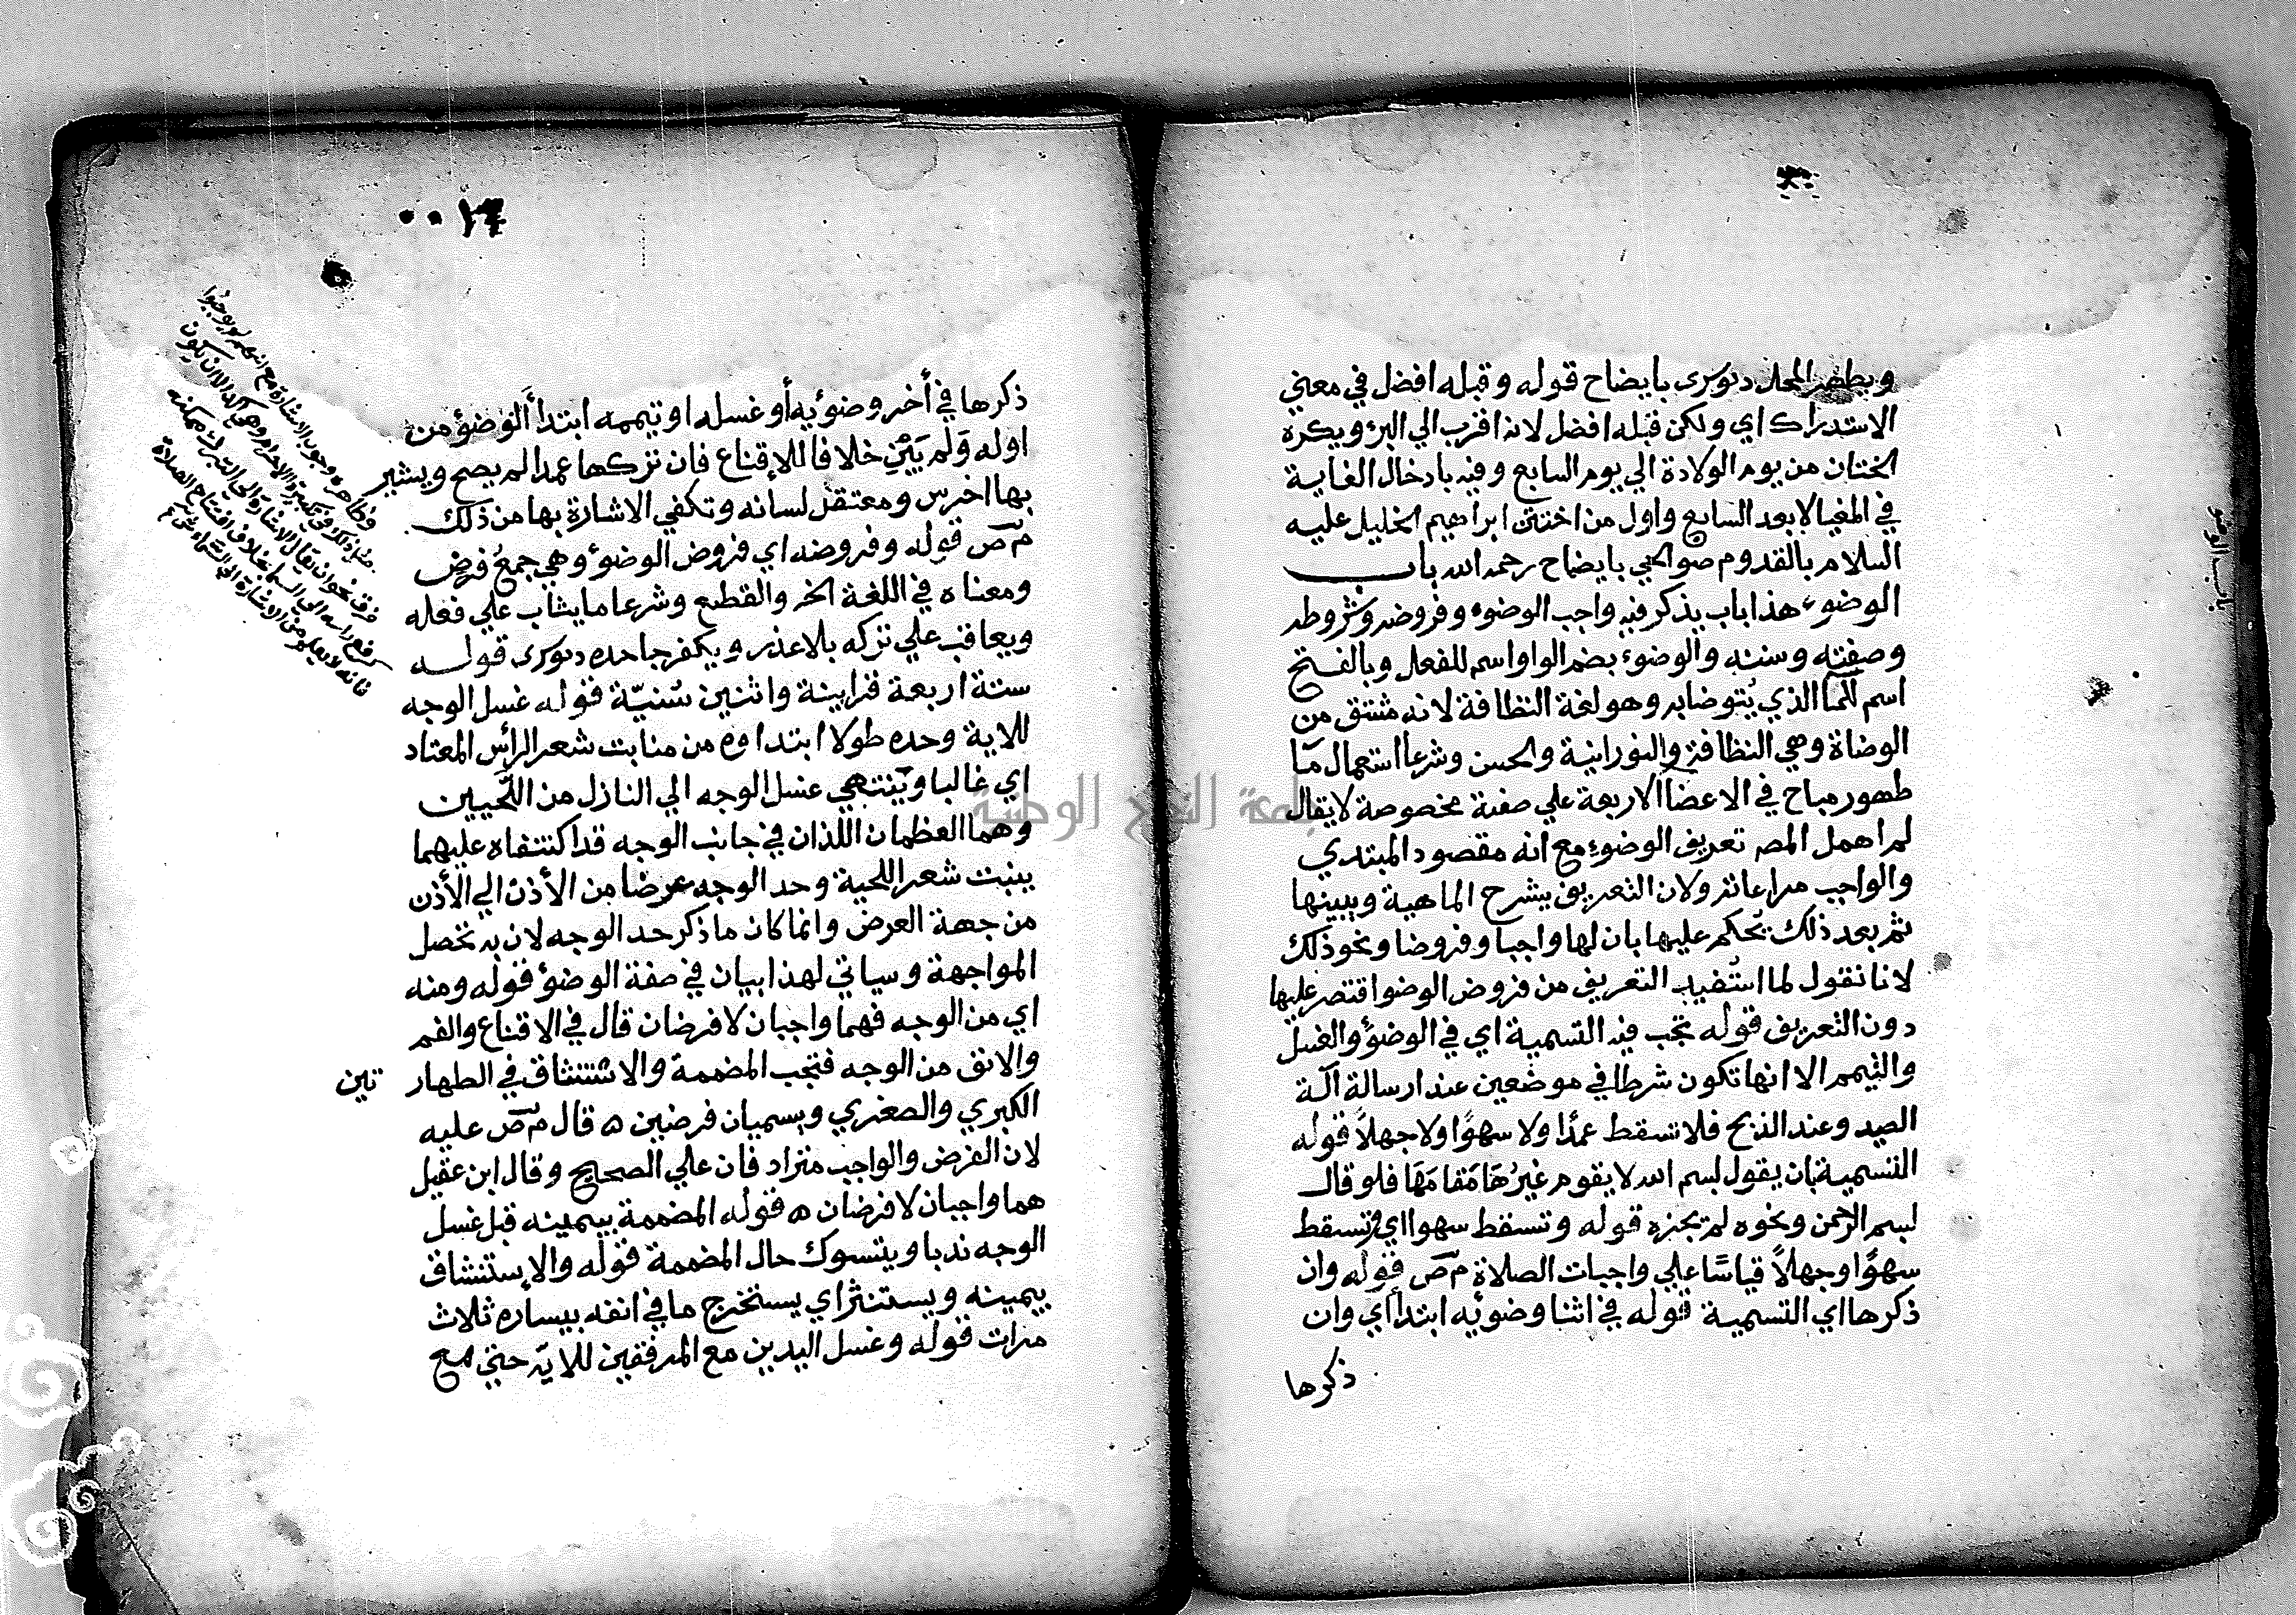 ويطهر المحل دنوسرى بايضاح قوله وقبله افضل في معني
الاستدراك اي ولكن قبله افضل لانه اقرب الي البرء ويكره
الختان من يوم الولادة الي يوم السابع وفيه بادخال الغاية
في المغيا لا بعد السابع واول من اختتن ابراهيم الخليل عليه
السلام بالقدوم صوالحي بايضاح رحمه الله باب
الوضوء هذا باب يذكر فيه واجب الوضوء وفروضه وشروطه
وصفته وسننه والوضوء بضم الواو اسم للفعل وبالفتح
اسم للمآ الذي يُتوضا به وهو لغة النظافة لانه مشتق من
الوضاة وهي النظافة والنورانية والحسن وشرعا استعمال مآ
طهور مباح في الاعضآ الاربعة علي صفة مخصوصة لا يقال
لم اهمل المصـ تعريف الوضوء مع انه مقصود المبتدي
والواجب مراعاته ولان التعريف يشرح الماهية ويبينها
ثم بعد ذلك يُحكم عليها بان لها واجبا وفروضا ونحو ذلك
لانا نقول لما استُفيد التعريف من فروض الوضو اقتصر عليها
دون التعريف قوله تجب فيه التسمية اي في الوضوء والغسل
والتيمم الا انها تكون شرطا في موضعين عند ارسالة آلة
الصيد وعند الذبح فلا تسقط عمدًا ولا سهوًا ولا جهلاً قوله
التسمية بان يقول بسم الله لا يقوم غيرُهَا مَقامَهَا فلو قال
بسم الرحمن ونحوه لم تجزه قوله وتسقط سهوا اي وتسقط
سهوًا وجهلاً قياسًا علي واجبات الصلاة م ص قوله وان
ذكرها اي التسمية قوله في اثنا وضوئه ابتدأ اي وان
ذكرها
باب الوضو
ذكرها في أخر وضوئه أو غسله او تيممه ابتدأ الوضوء من
اوله وَلم يَبْنِ خلافا للإقناع فان تركها عمدا لم يصح ويشير
بها اخرس ومعتقل لسانه وتكفي الاشارة بها من ذلك
م ص قوله وفروضه اي فروض الوضوء وهي جمعُ فرض
ومعناه في اللغة الحز والقطع وشرعا ما يثاب علي فعله
ويعاقب علي تركه بلا عذر ويكفر جاحده دنوسرى قوله
ستة اربعة قرانية واثنين سُنيّة قوله غسل الوجه
للاية وحده طولا ابتداوه من منابت شعر الرأس المعتاد
اي غالبا ويَنتهي غسل الوجه الي النازل من اللَّحيين
وهما العظمان اللذان في جانب الوجه قد اكتنفاه عليهما
ينبت شعر اللحية وحد الوجه عرضا من الأذن الي الأذن
من جهة العرض وانما كان ما ذكر حد الوجه لان به تحصل
المواجهة وسياتي لهذا بيان في صفة الوضوء قوله ومنه
اي من الوجه فهما واجبان لا فرضان قال في الاقناع والفم
والانف من الوجه فتجب المضمضة والاستنشاق في الطهار تين
الكبري والصغري ويسميان فرضين ه قال م ص عليه
لان الفرض والواجب مترادفان علي الصحيح وقال ابن عقيل
هما واجبان لا فرضان ه قوله المضمضة بيمينه قبل غسل
الوجه ندبا ويتسوك حال المضمضة قوله والإستنشاق
بيمينه ويستنثر اي يستخرج ما في انفه بيساره ثلاث
مرات قوله وغسل اليدين مع المرفقين للايّه حتي مع
وظاهره وجوب الاشارة مع انهم لم يوجبوا
مثل ذلك في تكبيرة الاحرام وهي اكد الا ان يكون
فرق نحو ان يقال الاشارة الي التبرك ممكنه
كرفع راسه الي السما بخلاف افتتاح الصلاة
فانه لا يعلم من الاشارة الي السماء شي
جامعة النجاح الوطنية